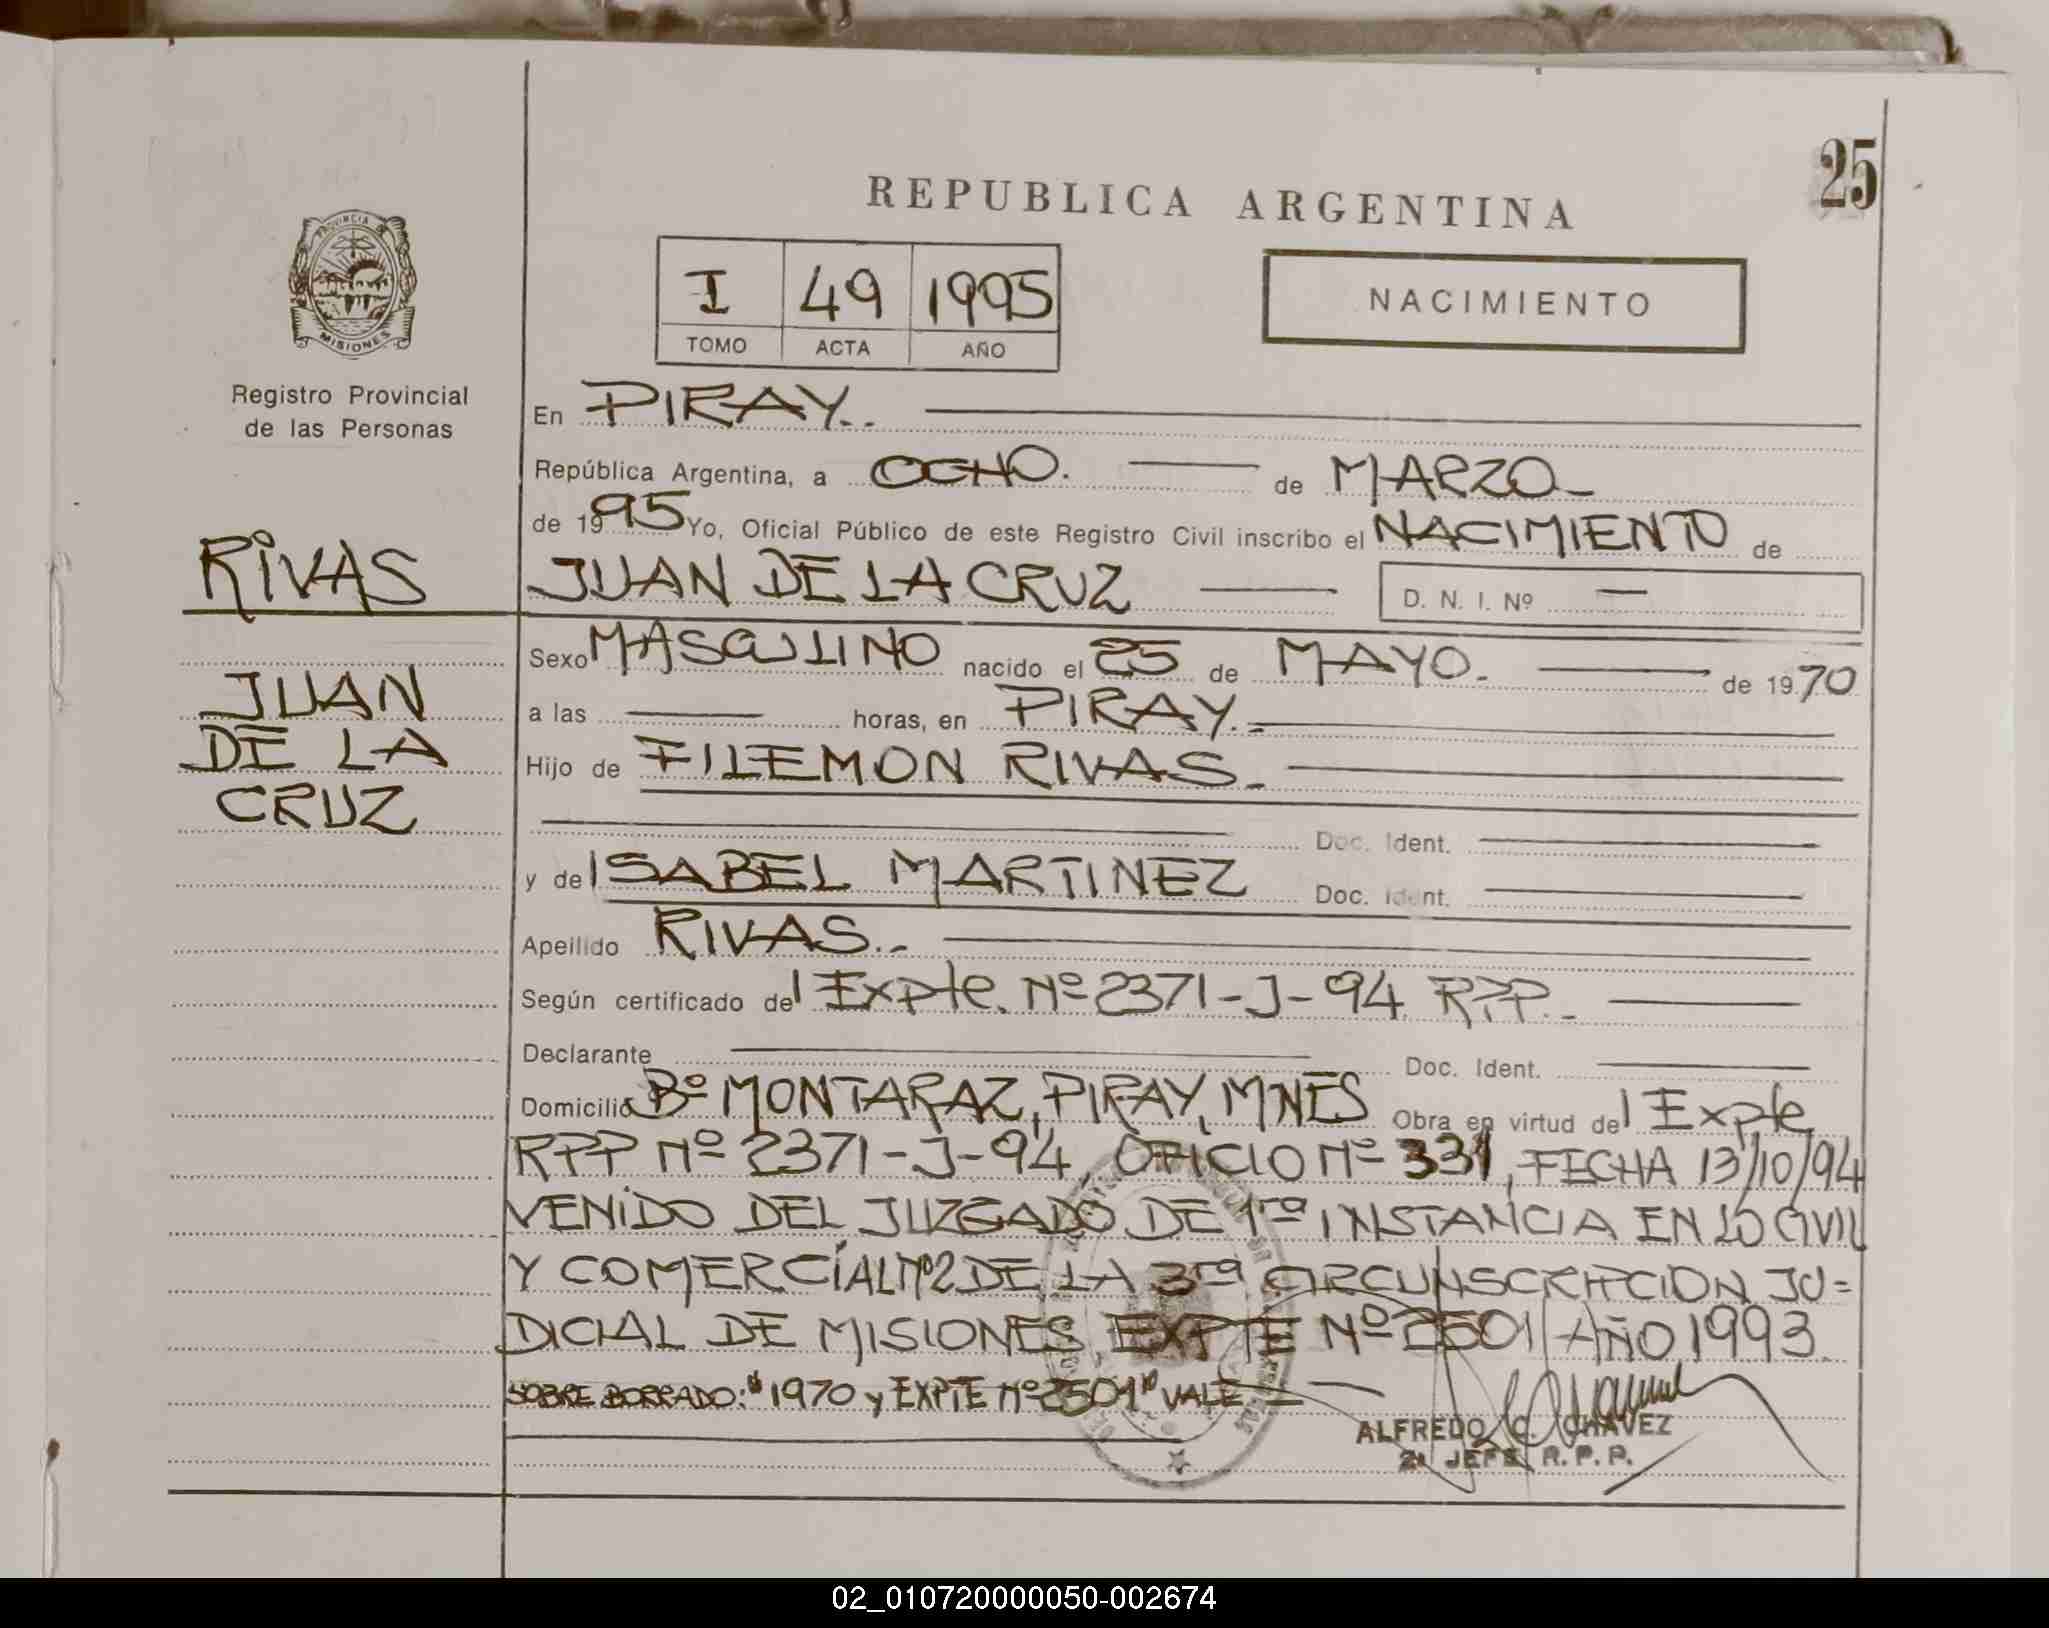 25
REPUBLICA ARGENTINA
PROVINCIA
MISIONES
I 49 1995
TOMO ACTA AÑO
NACIMIENTO
Registro Provincial
de las Personas
RIVAS
JUAN
DE LA
CRUZ
En PIRAY..
República Argentina, a OCHO. de MARZO_
de 1995 Yo, Oficial Público de este Registro Civil inscribo el NACIMIENTO de
JUAN DE LA CRUZ D. N. I. Nº —
Sexo MASCULINO nacido el 25 de MAYO. de 1970
a las — horas, en PIRAY.
Hijo de FILEMON RIVAS._
Doc. Ident.
y de ISABEL MARTINEZ Doc. Ident.
Apellido RIVAS..
Según certificado del Expte. Nº 2371-J-94 RPP._
Declarante Doc. Ident.
Domicilio Bº MONTARAZ, PIRAY, MNES Obra en virtud del Expte
RPP Nº 2371-J-94, OFICIO Nº 331, FECHA 13/10/94
VENIDO DEL JUZGADO DE 1ra INSTANCIA EN LO CIVIL
Y COMERCIAL Nº2 DE LA 3ra CIRCUNSCRIPCION JU=
DICIAL DE MISIONES EXPTE Nº 2501/AÑO 1993.
SOBRE BORRADO: "1970 y EXPTE Nº 2501" VALE —
ALFREDO C. CHAVEZ
2º JEFE R.P.P.
02_010720000050-002674